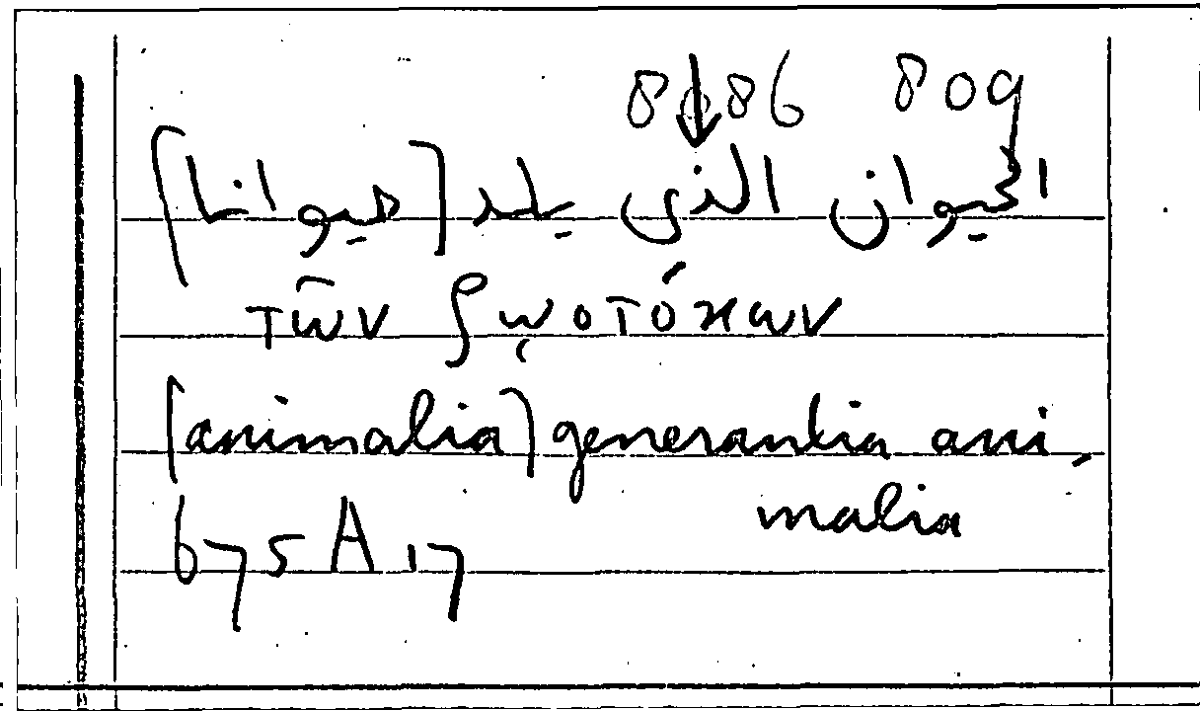 8086 809
الحيوان الذى يلد [حيوانا]
τῶν ζῳοτόκων
[animalia] generantia ani-
malia
675 A 17